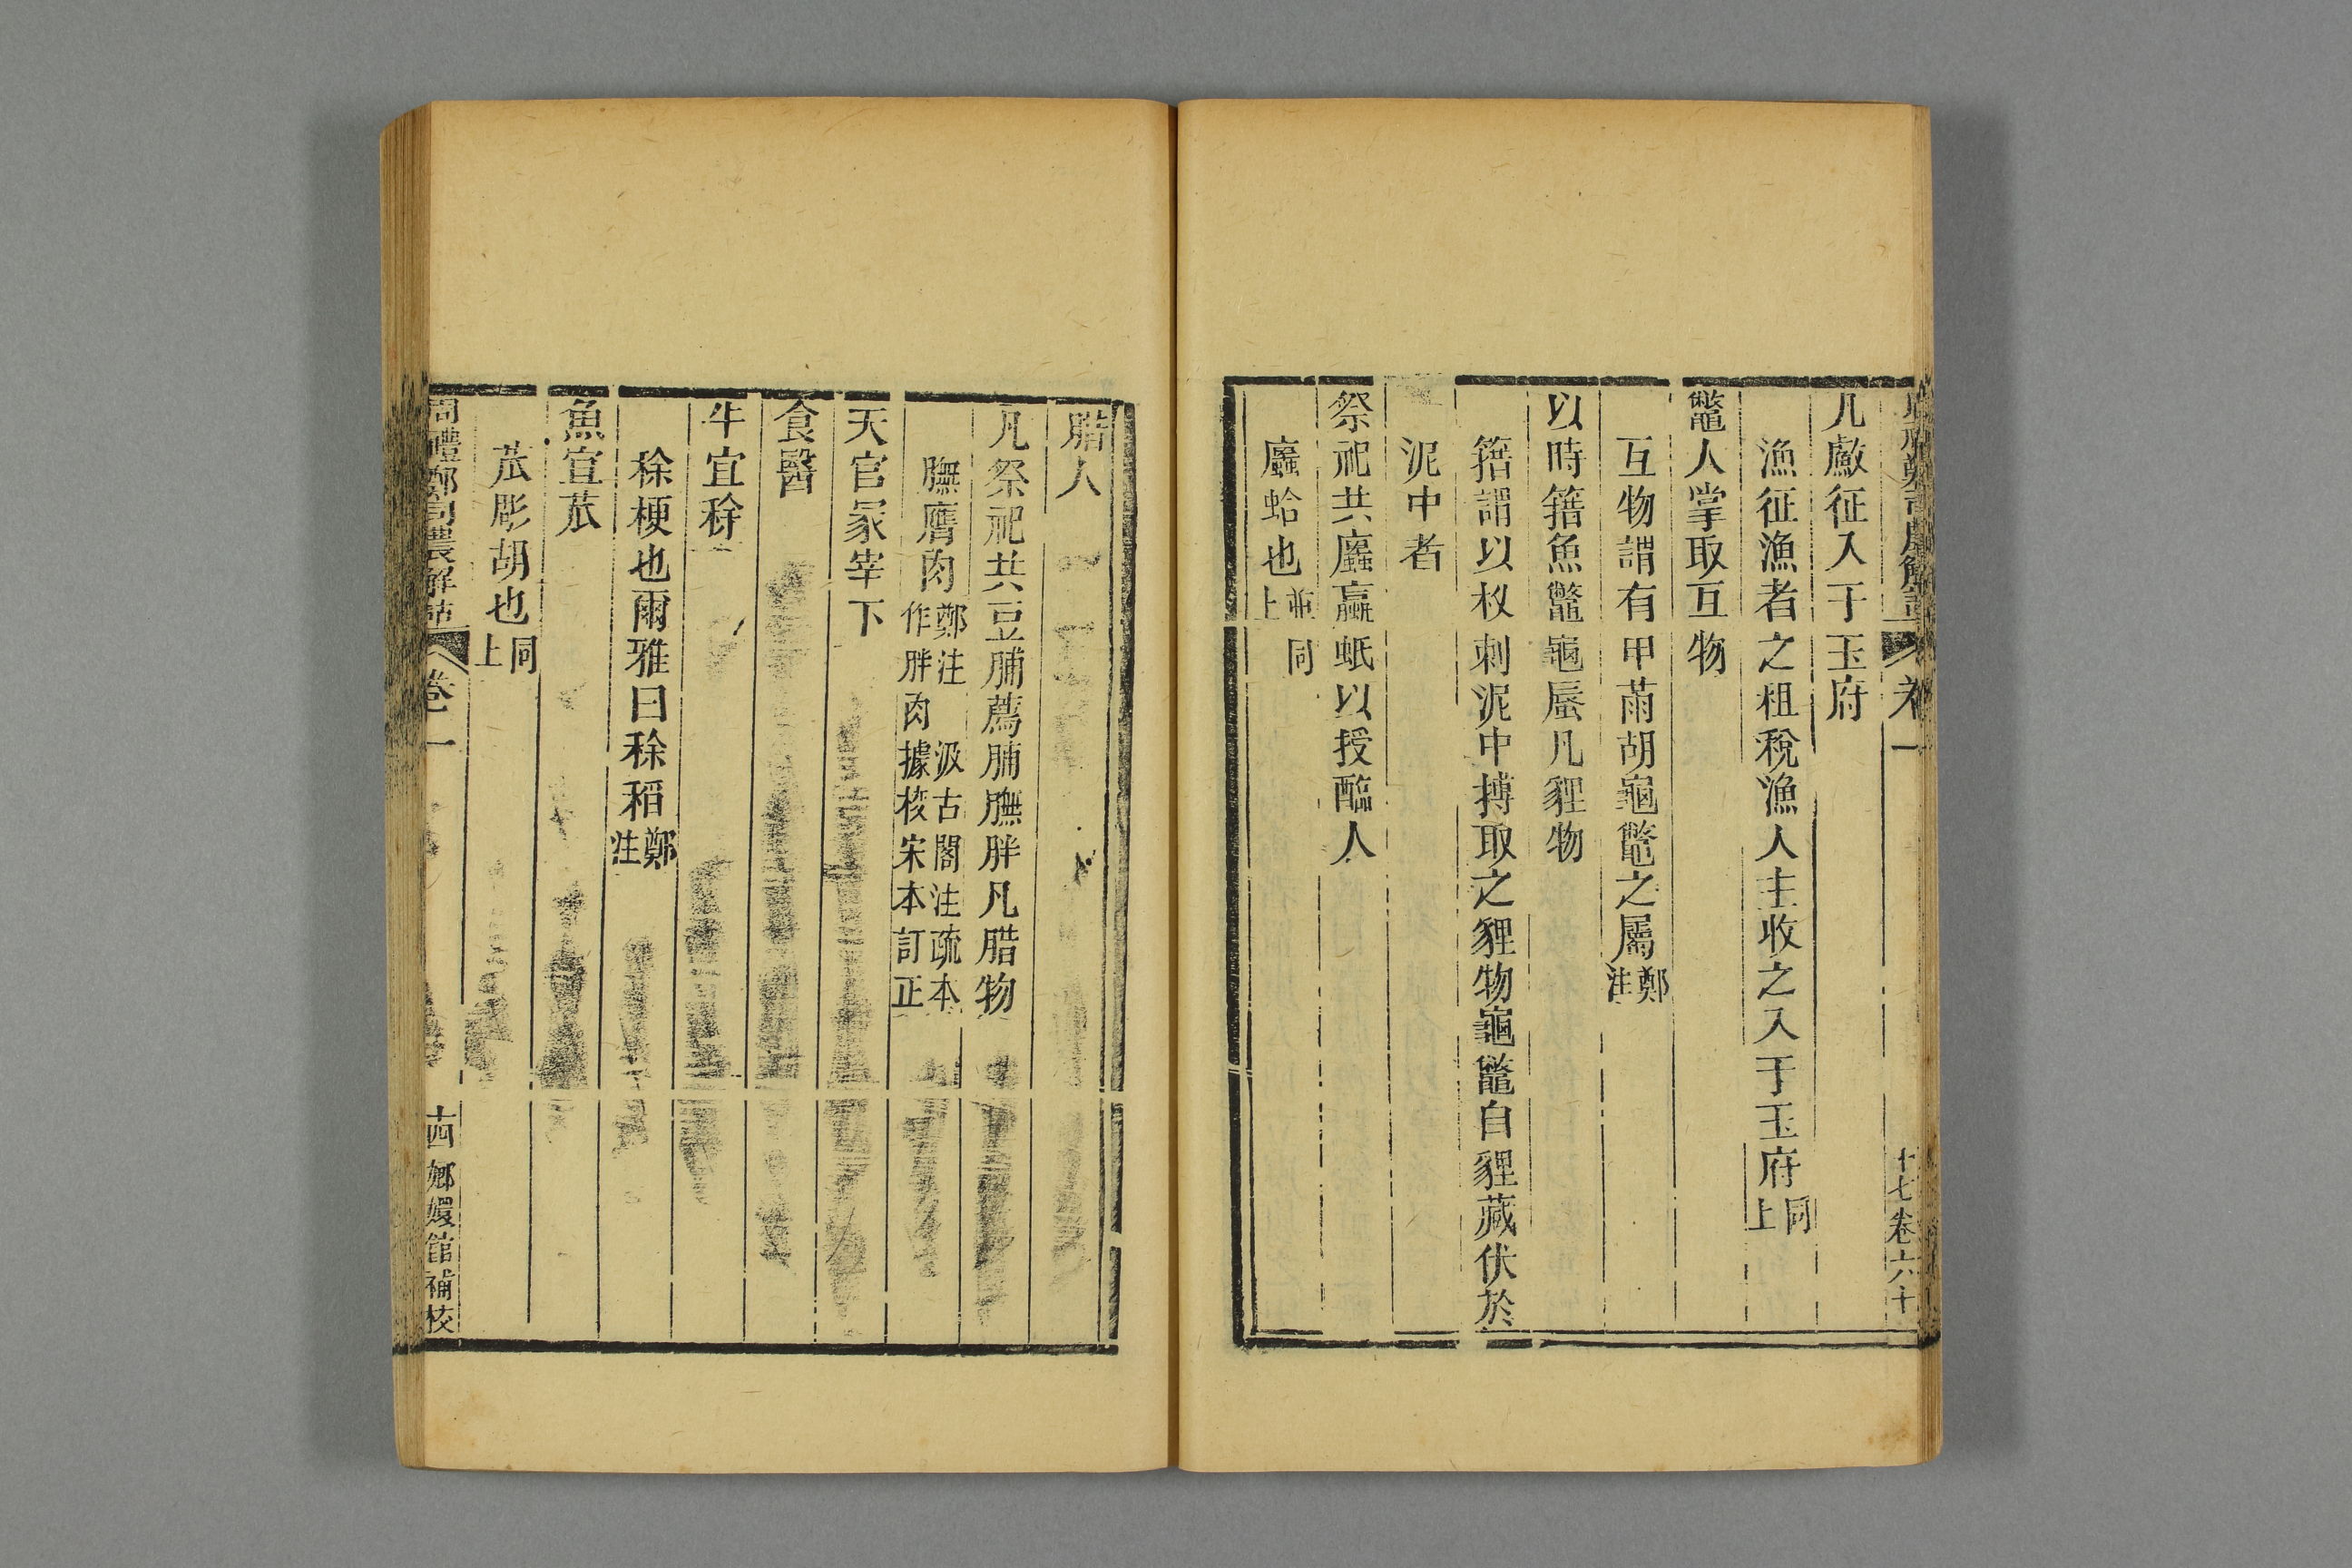 周禮鄭司農解詁 卷一 十七 卷六十
凡䱷征入于玉府
漁征漁者之租稅漁人主收之入于玉府同上
鼈人掌取互物
互物謂有甲㒼胡龜鼈之屬鄭注
以時簎魚鼈龜蜃凡貍物
簎謂以杈刺泥中搏取之貍物龜鼈自貍藏伏於
泥中者
祭祀共蠯蠃蚳以授醢人
蠯蛤也並同上
腊人
凡祭祀共豆脯薦脯膴胖凡腊物
膴膺肉鄭注 汲古閣注疏本作胖肉據校宋本訂正
天官冢宰下
食醫
牛宜稌
稌梗也爾雅曰稌稻鄭注
魚宜苽
苽彫胡也同上
周禮鄭司農解詁 卷一 十四 嫏嬛館補校